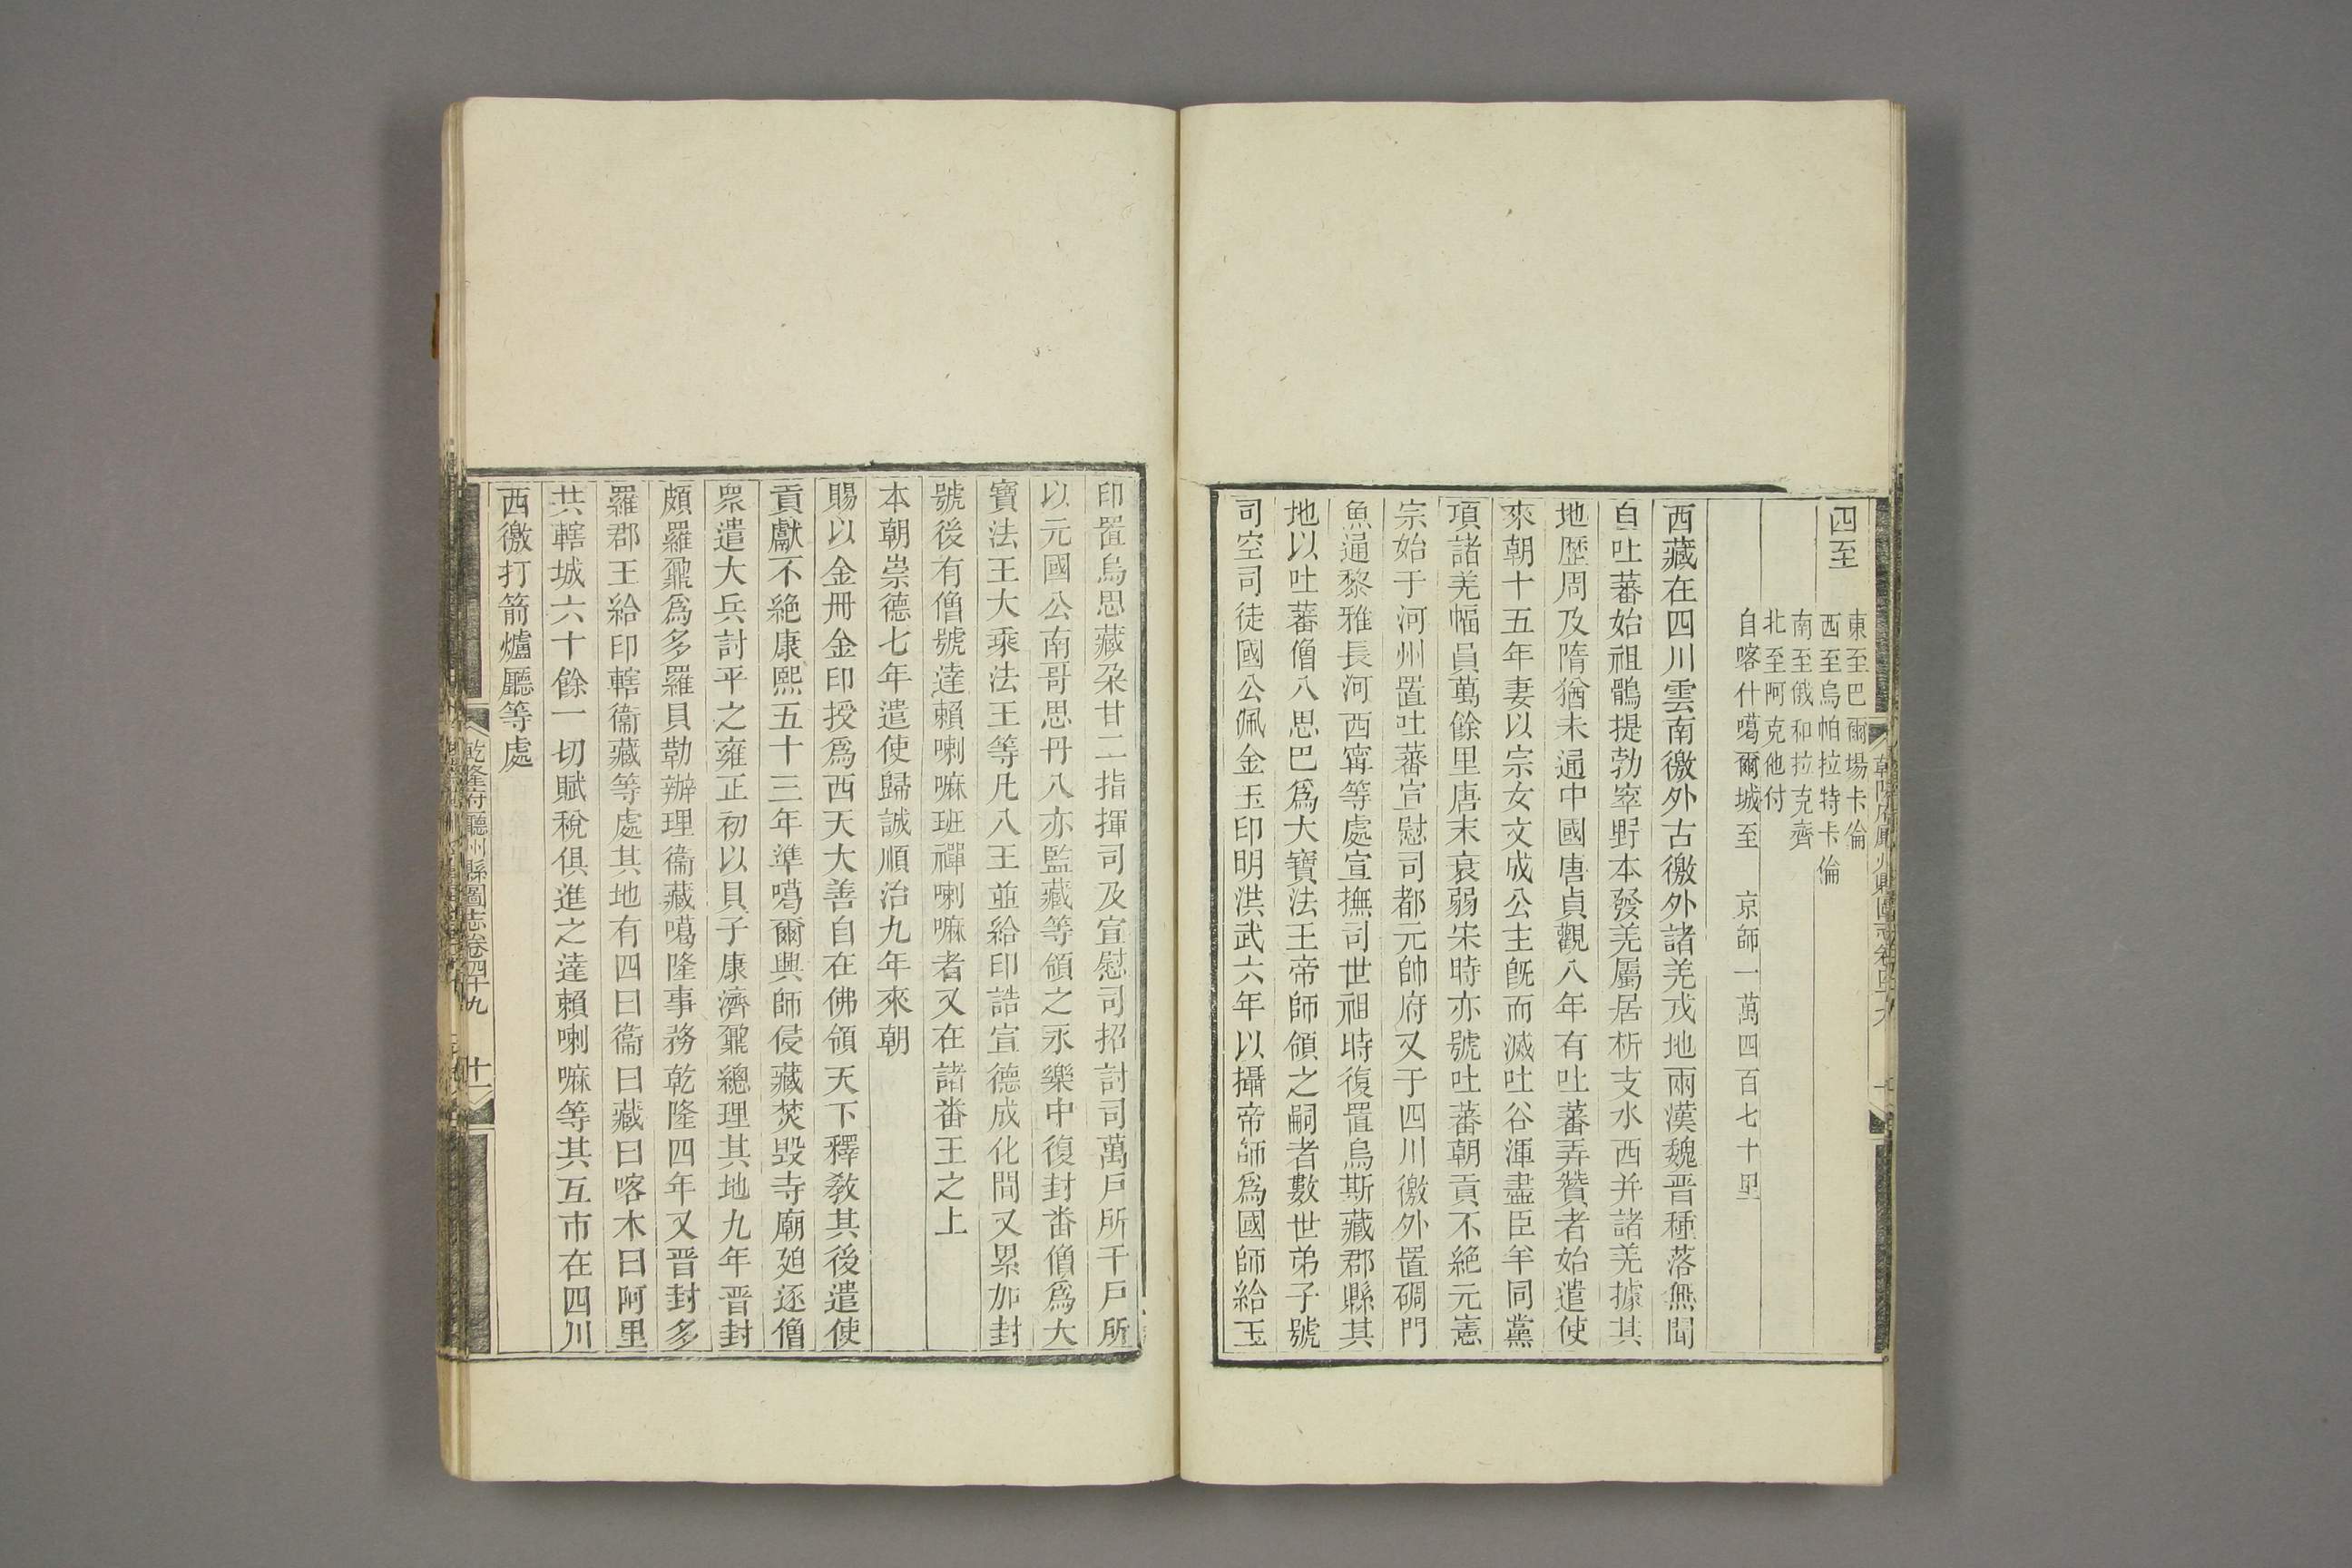 四至
東至巴爾場卡倫
西至烏帕拉特卡倫
南至俄和拉克齊
北至阿克他付
自喀什噶爾城至　京師一萬四百七十里
西藏在四川雲南徼外古徼外諸羌戎地兩漢魏晋種落無聞
自吐蕃始祖鶻提勃窣野本發羌屬居析支水西并諸羌據其
地歴周及隋猶未通中國唐貞觀八年有吐蕃弄贊者始遣使
來朝十五年妻以宗女文成公主旣而滅吐谷渾盡臣羊同黨
項諸羌幅員萬餘里唐末衰弱宋時亦號吐蕃朝貢不絶元憲
宗始于河州置吐蕃宣慰司都元帥府又于四川徼外置碉門
魚通黎雅長河西寗等處宣撫司世祖時復置烏斯藏郡縣其
地以吐蕃僧八思巴爲大寶法王帝師領之嗣者數世弟子號
司空司徒國公佩金玉印明洪武六年以攝帝師爲國師給玉
印置烏思藏朶甘二指揮司及宣慰司招討司萬戸所千戸所
以元國公南哥思丹八亦監藏等領之永樂中復封番僧爲大
寶法王大乘法王等凡八王並給印誥宣德成化間又累加封
號後有僧號達賴喇嘛班禪喇嘛者又在諸番王之上
本朝崇德七年遣使歸誠順治九年來朝
賜以金冊金印授爲西天大善自在佛領天下釋敎其後遣使
貢獻不絶康熙五十三年準噶爾興師侵藏焚毀寺廟廹逐僧
衆遣大兵討平之雍正初以貝子康濟鼐總理其地九年晋封
頗羅鼐爲多羅貝勒辦理衞藏噶隆事務乾隆四年又晋封多
羅郡王給印轄衞藏等處其地有四曰衞曰藏曰喀木曰阿里
共轄城六十餘一切賦稅俱進之達賴喇嘛等其互市在四川
西徼打箭爐廳等處
乾隆府廳州縣圖志卷四十九　十一